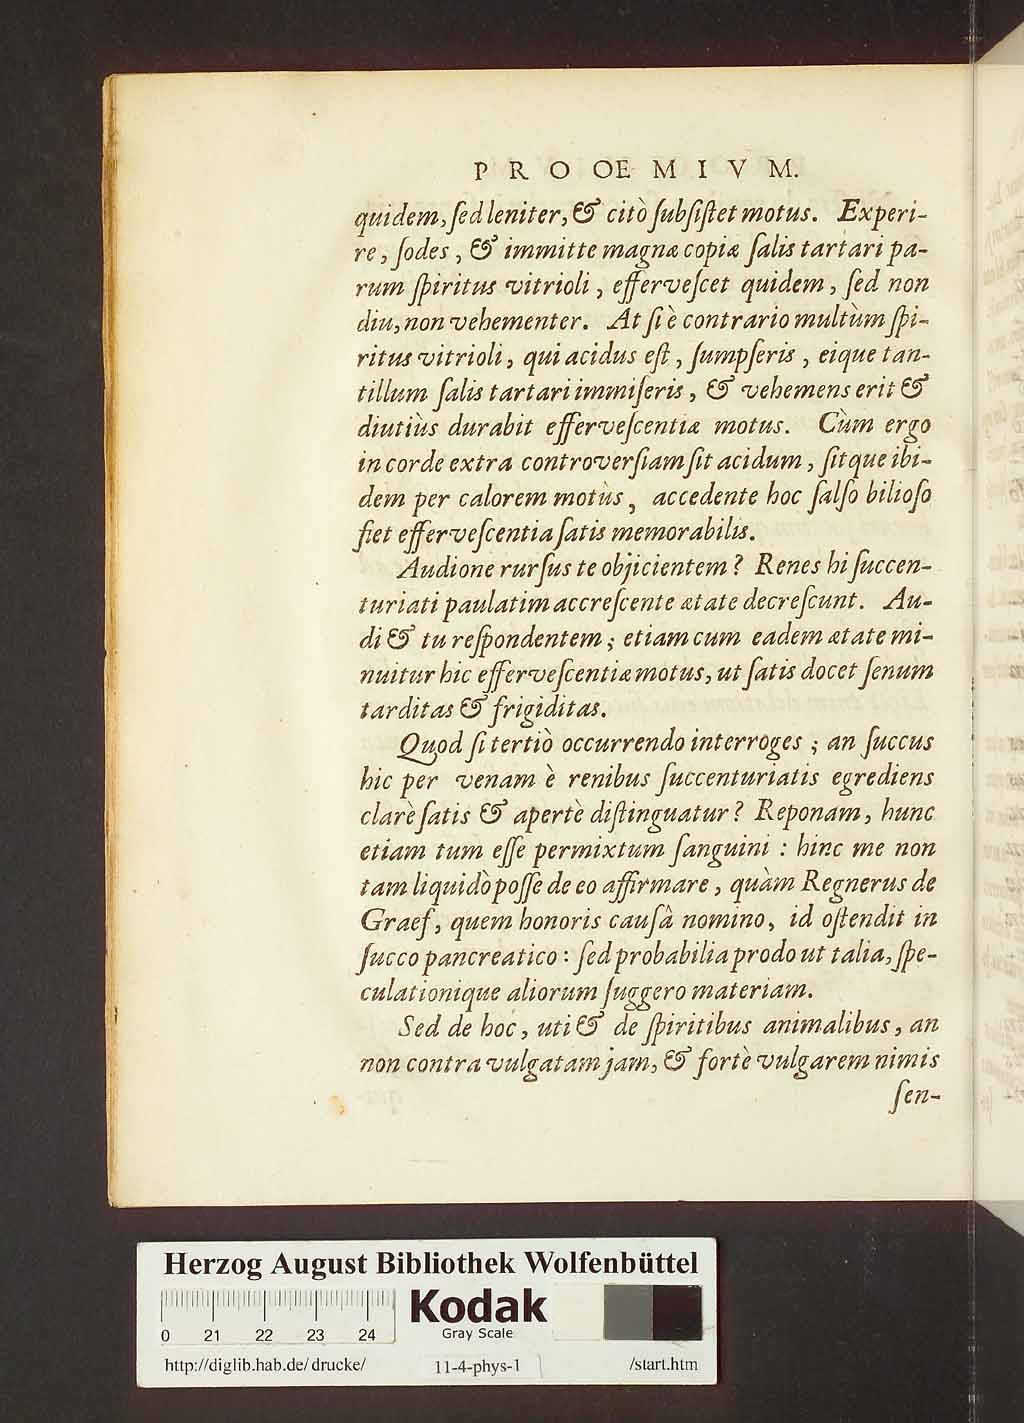 PROOEMIVM.
quidem, ſed leniter, & citò ſubſiſtet motus. Experi-
re, ſodes, & immitte magnæ copiæ ſalis tartari pa-
rum ſpiritus vitrioli, efferveſcet quidem, ſed non
diu, non vehementer. At ſi è contrario multùm ſpi-
ritus vitrioli, qui acidus eſt, ſumpſeris, eique tan-
tillum ſalis tartari immiſeris, & vehemens erit &
diutiùs durabit efferveſcentiæ motus. Cùm ergo
in corde extra controverſiam ſit acidum, ſitque ibi-
dem per calorem motùs, accedente hoc ſalſo bilioſo
fiet efferveſcentia ſatis memorabilis.
Audione rurſus te objicientem? Renes hi ſuccen-
turiati paulatim accreſcente ætate decreſcunt. Au-
di & tu reſpondentem; etiam cum eadem ætate mi-
nuitur hic efferveſcentiæ motus, ut ſatis docet ſenum
tarditas & frigiditas.
Quod ſi tertiò occurrendo interroges; an ſuccus
hic per venam è renibus ſuccenturiatis egrediens
clarè ſatis & apertè diſtinguatur? Reponam, hunc
etiam tum eſſe permixtum ſanguini: hinc me non
tam liquidò poſſe de eo affirmare, quàm Regnerus de
Graef, quem honoris cauſâ nomino, id oſtendit in
ſucco pancreatico: ſed probabilia prodo ut talia, ſpe-
culationique aliorum ſuggero materiam.
Sed de hoc, uti & de ſpiritibus animalibus, an
non contra vulgatam jam, & fortè vulgarem nimis
ſen-
Herzog August Bibliothek Wolfenbüttel
Kodak
Gray Scale
0 21 22 23 24
http://diglib.hab.de/drucke/ 11-4-phys-1 /start.htm